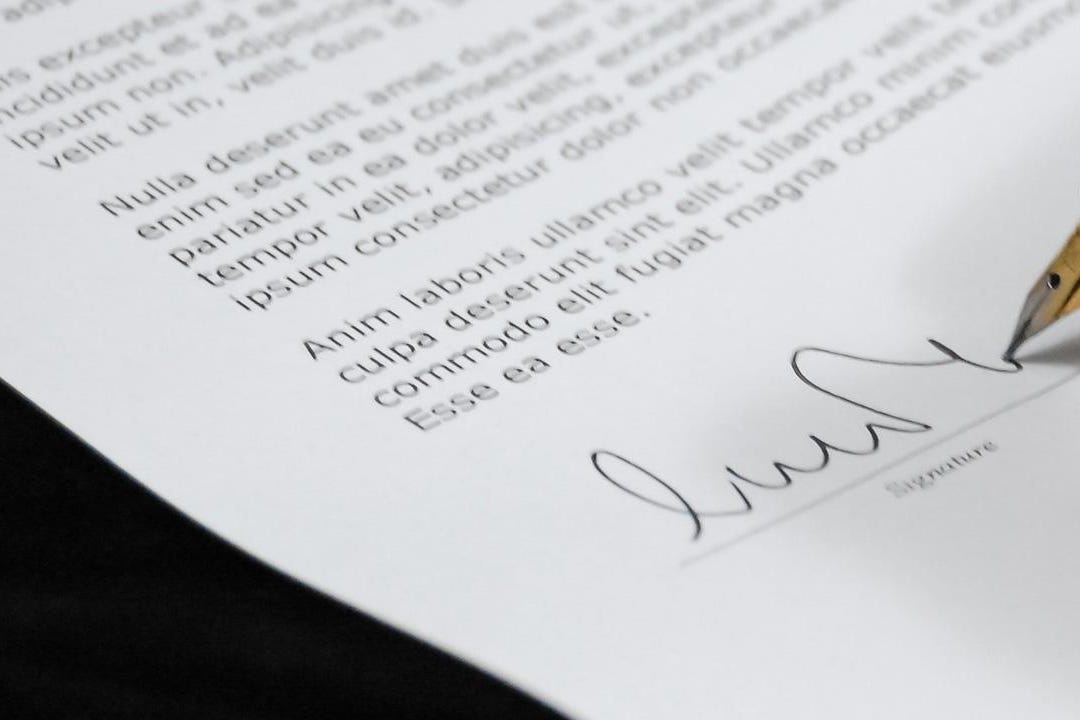 excepteur
incididunt et ad ea
ipsum non. Adipisicing
velit ut in, velit duis id.
Nulla deserunt amet duis est
enim sed ea eu consectetur ut,
pariatur in ea dolor velit, excepteur
tempor velit, adipisicing, excepteur
ipsum consectetur dolor non occaecat
Anim laboris ullamco velit tempor velit
culpa deserunt sint elit. Ullamco minim
commodo elit fugiat magna occaecat eiusmod
Esse ea esse.
Signature